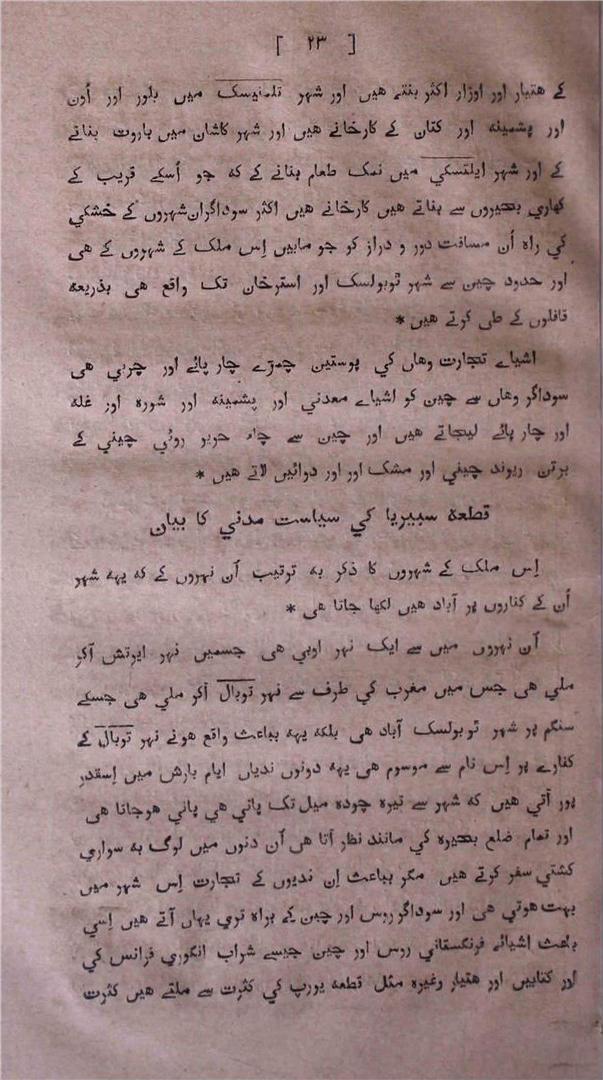 [ ۲۳ ]
کے هتیار اور اوزار اکثر بنتے هیں اور شہر تلمنیسک میں بلور اور اُون
اور پشمینه اور کتان کے کارخانے هیں اور شہر کاشان میں باروت بناتے
کے اور شہر ایلتسکي میں نمک طعام بنانے کے که جو اُسکے قریب کے
کھاري بحیروں سے بناتے هیں کارخانے هیں اکثر سوداگران شہروں کے خشکي
کي راه اُن مسافت دور و دراز کو جو مابین اِس ملک کے شہروں کے هی
اور حدود چین سے شہر ٹوبولسک اور استرخان تک واقع هی بذریعه
قافلوں کے طی کرتے هیں *
اشیاے تجارت وهاں کي پوستین چمڑے چار پائے اور چربي هی
سوداگر وهاں سے چین کو اشیاے معدني اور پشمینه اور شوره اور غله
اور چار پائے لیجاتے هیں اور چین سے چاء حریر روئي چیني کے
برتن ریوند چیني اور مشک اور اور دوائیں لاتے هیں *
قطعه سبیریا کي سیاست مدني کا بیان
اِس ملک کے شہروں کا ذکر به ترتیب اُن نہروں کے که یہه شہر
اُن کے کناروں پر آباد هیں لکھا جاتا هی *
اُن نہروں میں سے ایک نہر اوبي هی جسمیں نہر ایرتش آکر
ملي هی جس میں مغرب کي طرف سے نہر توبال آکر ملي هی جسکے
سنگم پر شہر ٹوبولسک آباد هی بلکه یہه بباعث واقع هونے نہر توبال کے
کنارے پر اِس نام سے موسوم هی یہه دونوں ندیاں ایام بارش میں اِسقدر
پور آتي هیں که شہر سے تیره چوده میل تک پاني هي پاني هوجاتا هی
اور تمام ضلع بحیره کي مانند نظر آتا هی اُن دنوں میں لوگ به سواري
کشتي سفر کرتے هیں مگر بباعث اِن ندیوں کے تجارت اِس شہر میں
بہت هوتي هی اور سوداگر روس اور چین کے براه تري یہاں آتے هیں اِسي
باعث اشیائے فرنگستاني روس اور چین جیسے شراب انگوري فرانس کي
اور کتابیں اور هتیار وغیره مثل قطعه یورپ کي کثرت سے ملتے هیں کثرت